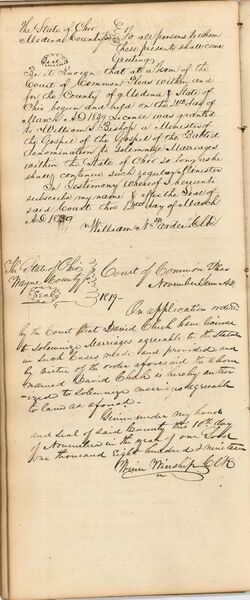 The State of Ohio
Medina County ss To all persons to whom
These presents shall come
Greeting
Be it Known that at a Term of the
Court of Common Pleas within and
for the County of Medina & State of
Ohio begun and held on the day of
March A.D 1839 License was granted
to William S. Bishop a Minister of
the Gospel of the Gospel of the Baptist
denomination to Solemnize Marriages
within the State of Ohio so long as he
shall continue such regular Minister
In Testimony Whereof I hereunto
subscribe my name & affix the Seal of
said Court this day of March
A.D 1839
William H Clk
The State of Ohio
Wayne County ss Court of Common Pleas
Seal November Term A.D
1819-
On application order
by the Court that David have license
to Solemnize Marriages agreeable to the Statute
in such cases made and provided and
by virtue of the order aforesaid the above
named David is hereby author
-ized to solemnize marriages agreeable
to law as aforesd.
Given under my hand
and seal of said County this 10th day
of November in the year of our Lord
one thousand eight hundred & nineteen
Winship Clk